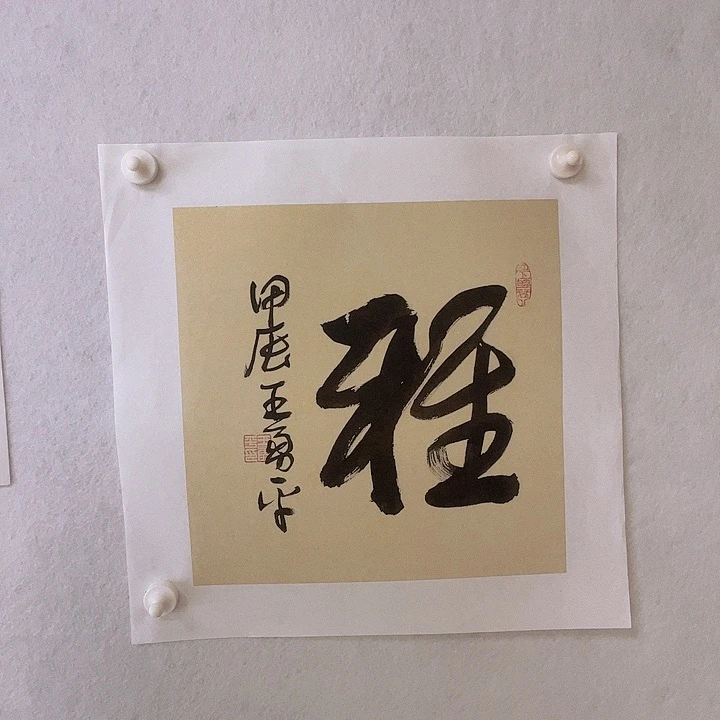 雅
甲辰王勇平